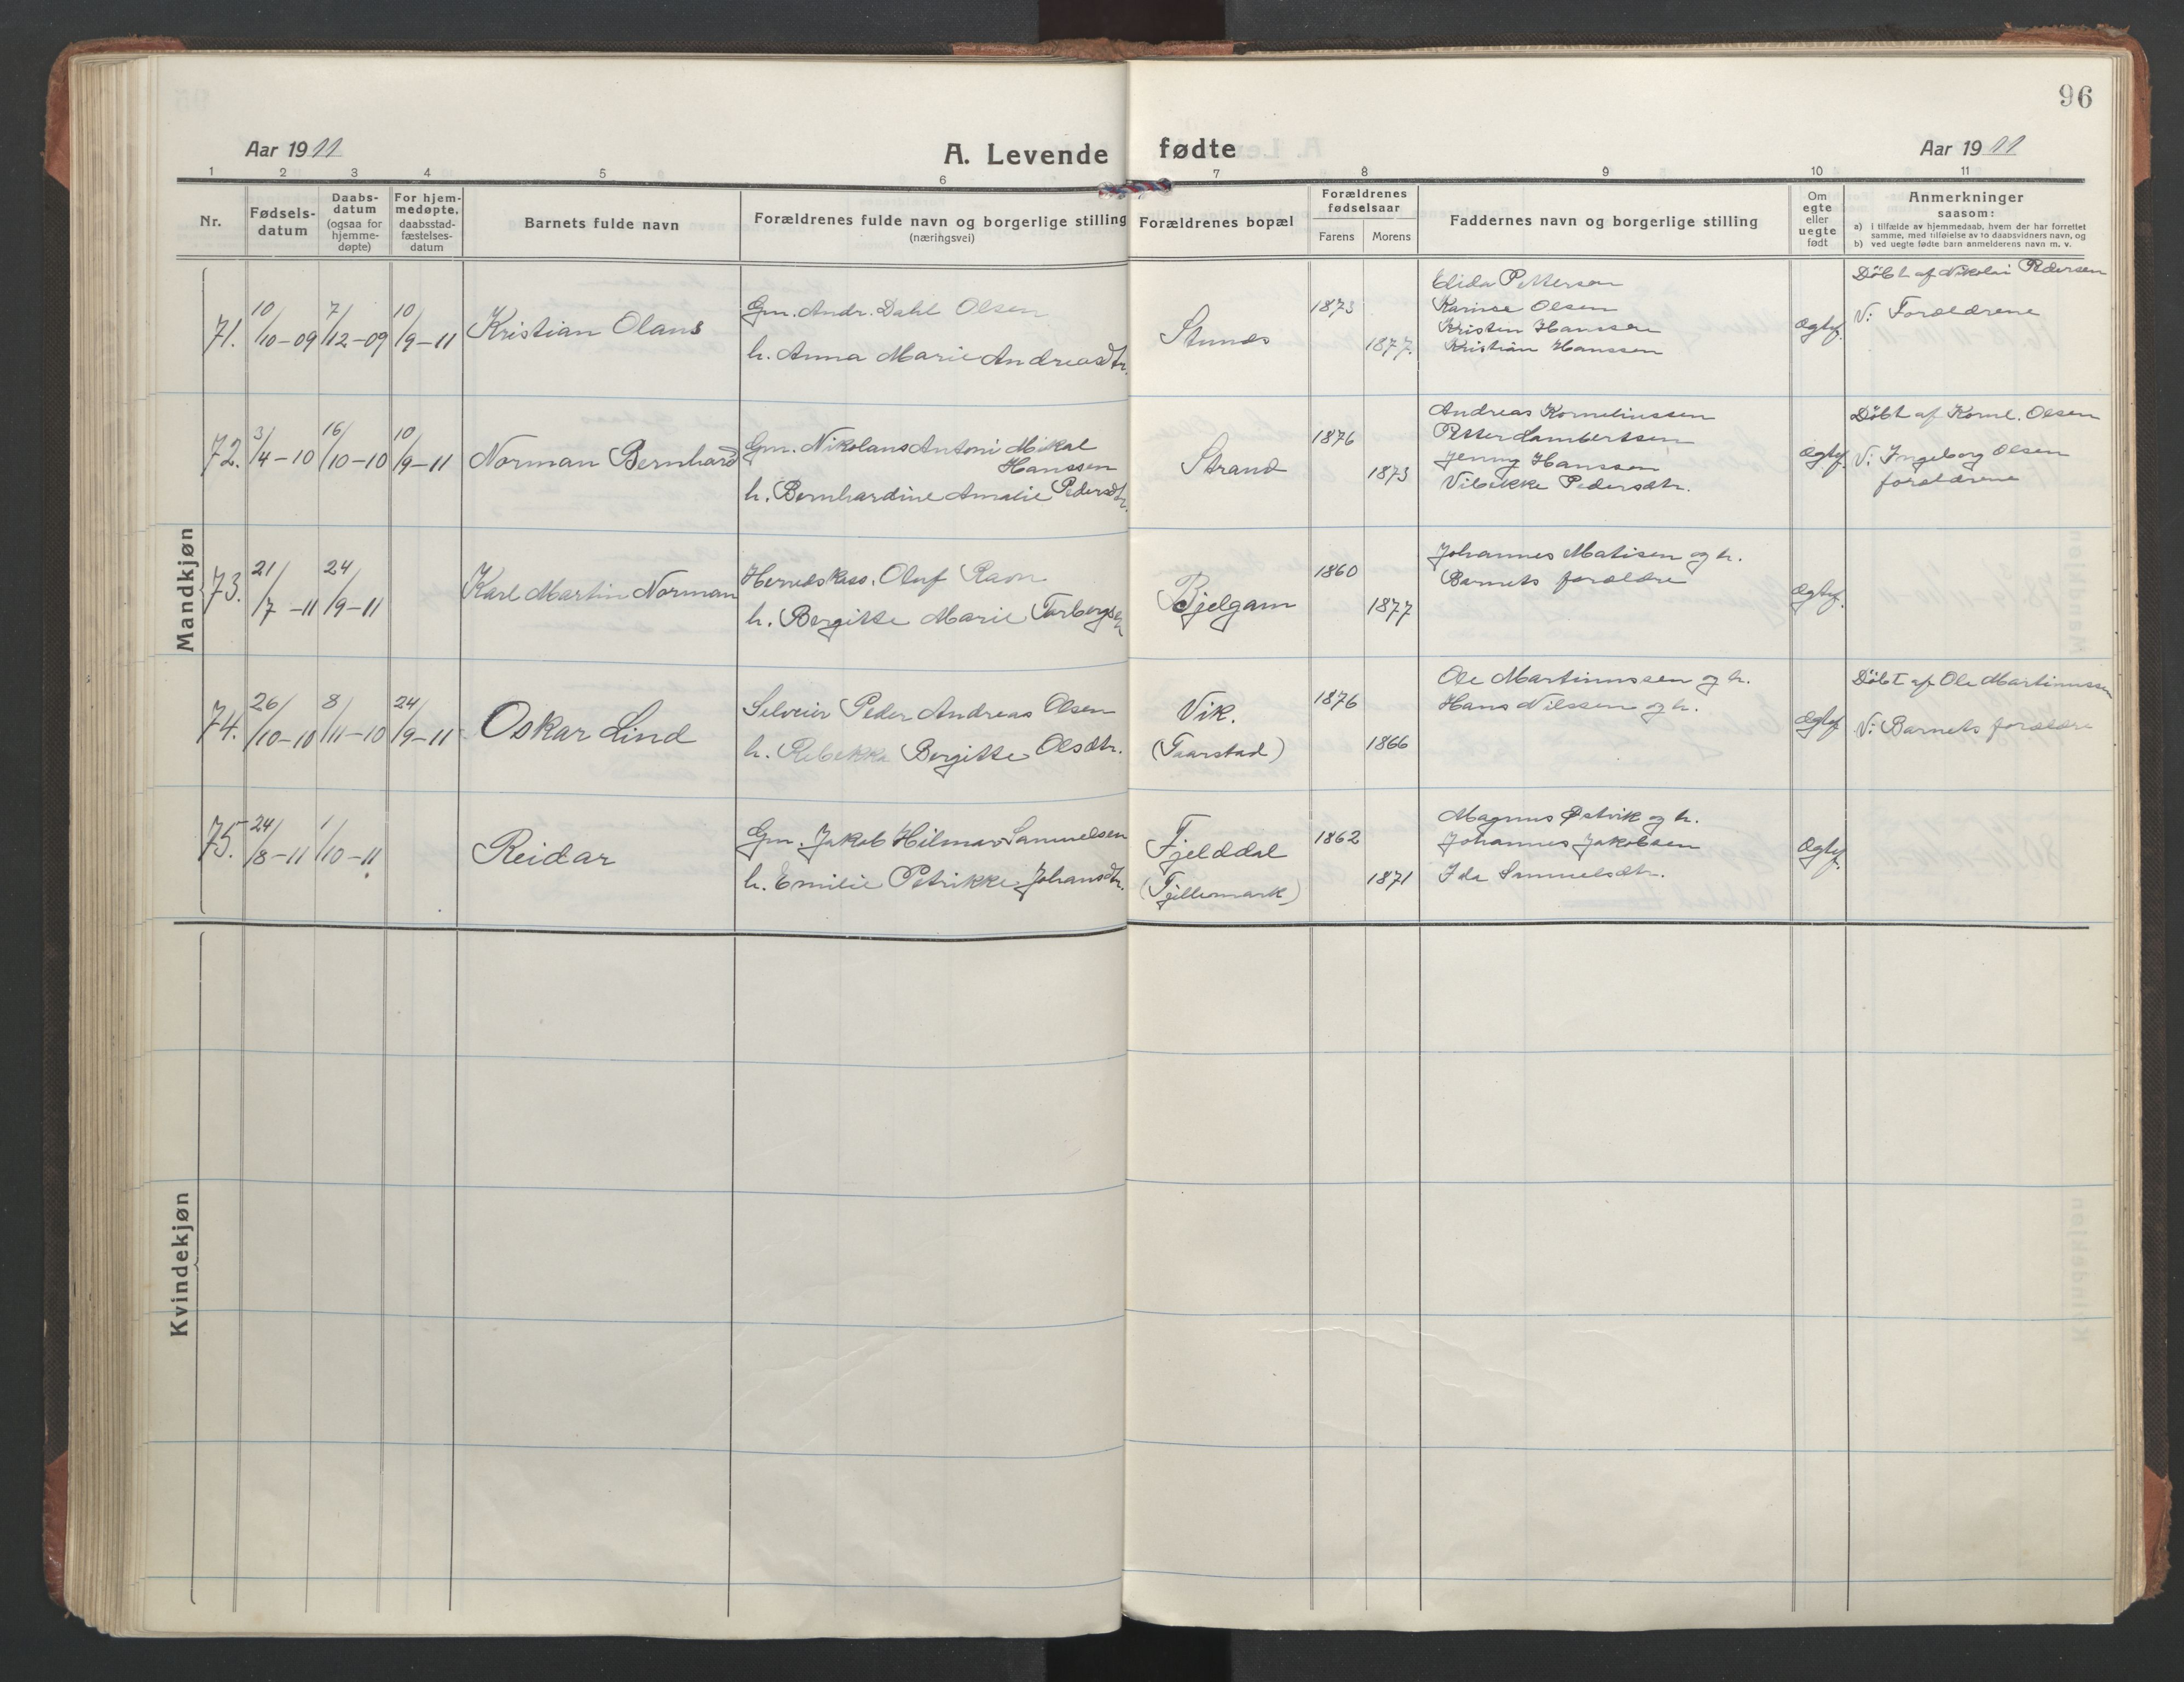 96
Aar 1911
A. Levende fødte
Aar 1911
1 2 3 4 5 6 7 8 9 10 11
Nr.
Fødsels-
datum
Daabs-
datum
(ogsaa for
hjemme-
døpte)
For hjem-
medøpte.
daabsstad-
fæstelses-
datum
Barnets fulde navn
Forældrenes fulde navn og borgerlige stilling
(næringsvei)
Forældrenes bopæl
Forældrenes
fødselsaar
Farens Morens
Faddernes navn og borgerlige stilling
Om
egte
eller
uegte
født
Anmerkninger
saasom:
a) i tilfælde av hjemmedaab, hvem der har forrettet
samme, med tilføielse av to daabsvidners navn, og
b) ved uegte fødte barn anmelderens navn m. v.
Mandkjøn
71.
10/10-09
7/12-09
10/9-11
Kristian Olaus
Gm. Andr. Dahl Olsen
h. Anna Marie Andreasdtr.
1873
1877.
Elida Pettersen
Karinse Olsen
Kristen Hanssen
Kristian Hanssen
Ægtef.
Döbt af Nikolai Pedersen
V: Forældrene
72.
3/4-10
16/10-10
10/9-11
Norman Bernhard
Gm. Nikolaus Antoni Mikal
Hanssen
h. Bernhardine Amalie Pedersdtr.
Strand
1876
1873
Andreas Korneliussen
Petter Lambertsen
Jenny Hanssen
Vibekke Pedersdtr.
Ægtef.
Döbt af Kornl. Olsen
V: Ingeborg Olsen
forældrene
73.
21/7-11
24/9-11
Karl Martin Norman
Herredskass. Oluf Ravn
h. Bergitte Marie Torbergsen
Bjelgam
1860
1877
Johannes Matisen og h.
Barnets forældre
Ægtef.
74.
26/10-10
8/11-10
24/9-11
Oskar Lind
Selveier Peder Andreas Olsen
h. Rebekka Bergitte Olsdtr.
Vik.
(Taarstad)
1876
1866
Ole Martinussen og h.
Hans Nilssen og h.
Ægtef
Döbt af Ole Martinussen
V: Barnets forældre
75.
24/8-11
1/10-11
Reidar
Gm. Jakob Hilmar Samuelsen
h. Emilie Petrikke Johansdtr.
Fjelddal
(Fjellemark)
1862
1871
Magnus Østvik og h.
Johannes Jakobsen
Ida Samuelsdtr.
Ægtef.
Kvindekjøn